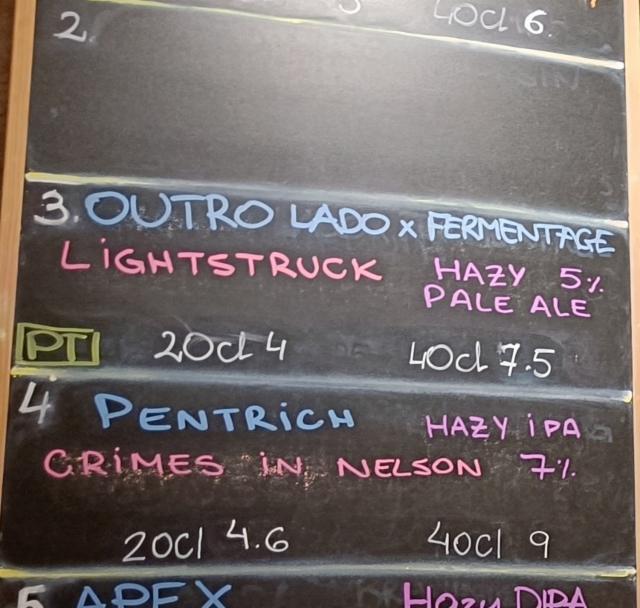 40cl 6.
2.
3. OUTRO LADO x FERMENTAGE
LiGHTSTRUCK HAZY 5%
PALE ALE
PT 20cl 4 40cl 7.5
4 PENTRiCH HAZY iPA
CRiMES iN NELSON 7%
20cl 4.6 40cl 9
5 APEX HAZY DIPA